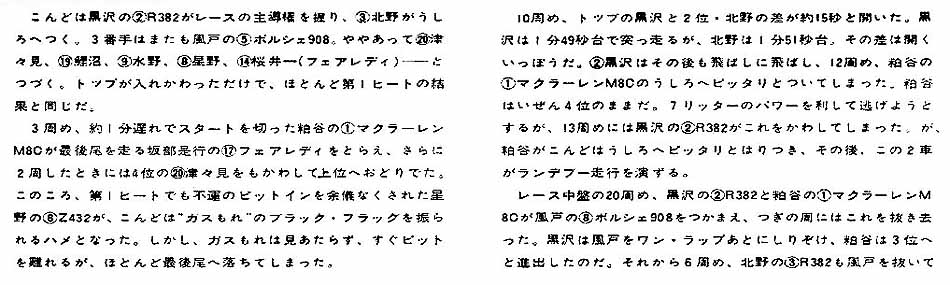 こんどは黒沢の②R382がレースの主導権を握り、③北野がうし
ろへつく。3番手はまたも風戸の⑤ポルシェ908。ややあって⑳津
々見、⑲鯉沼、⑨水野、⑧星野、⑭桜井一(フェアレディ)――と
つづく。トップが入れかわっただけで、ほとんど第1ヒートの結
果と同じだ。
3周め、約1分遅れでスタートを切った粕谷の①マクラーレン
M8Cが最後尾を走る坂部是行の⑰フェアレディをとらえ、さらに
2周したときには4位の⑳津々見をもかわして上位へおどりでた。
このころ、第1ヒートでも不運のピットインを余儀なくされた星
野の⑧Z432が、こんどは"ガスもれ"のブラック・フラッグを振ら
れるハメとなった。しかし、ガスもれは見あたらず、すぐピット
を離れるが、ほとんど最後尾へ落ちてしまった。
10周め、トップの黒沢と2位・北野の差が約15秒と開いた。黒
沢は1分49秒台で突っ走るが、北野は1分51秒台。その差は開く
いっぽうだ。②黒沢はその後も飛ばしに飛ばし、12周め、粕谷の
①マクラーレンM8Cのうしろへピッタリとついてしまった。粕谷
はいぜん4位のままだ。7リッターのパワーを利して逃げようと
するが、13周めには黒沢の②R382がこれをかわしてしまった。が、
粕谷がこんどはうしろへピッタリとはりつき、その後、この2車
がランデブー走行を演ずる。
レース中盤の20周め、黒沢の②R382と粕谷の①マクラーレンM
8Cが風戸の⑧ポルシェ908をつかまえ、つぎの周にはこれを抜き去
った。黒沢は風戸をワン・ラップあとにしりぞけ、粕谷は3位へ
と進出したのだ。それから6周め、北野の③R382も風戸を抜いて